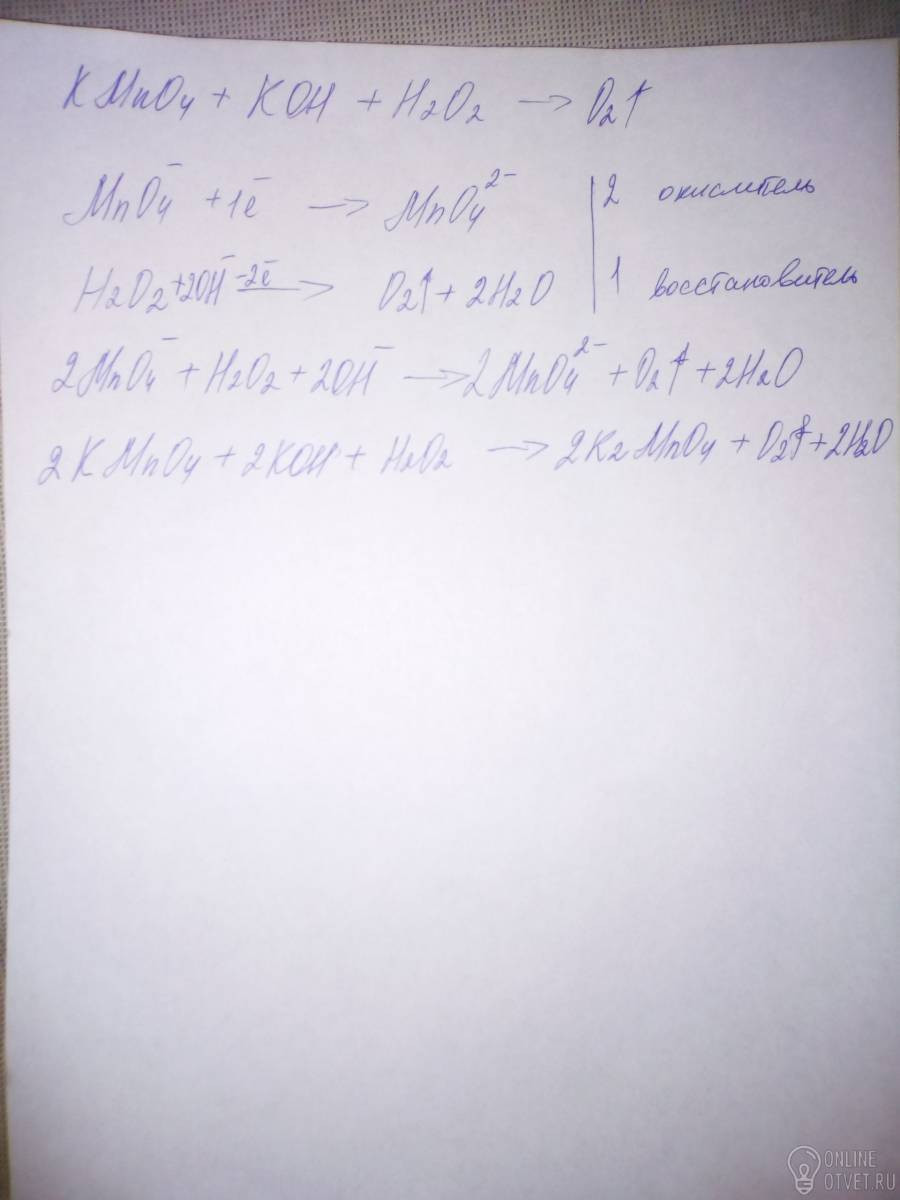 KMnO4 + KOH + H2O2 → O2↑
MnO4⁻ + 1ē → MnO4²⁻ | 2 окислитель
H2O2 + 2OH⁻ -2ē → O2↑ + 2H2O | 1 восстановитель
2MnO4⁻ + H2O2 + 2OH⁻ → 2MnO4²⁻ + O2↑ + 2H2O
2KMnO4 + 2KOH + H2O2 → 2K2MnO4 + O2↑ + 2H2O
ONLINE
OTVET.RU